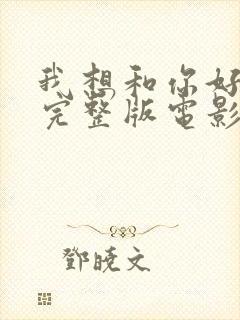 我想和你好
完整版電影
鄧曉文